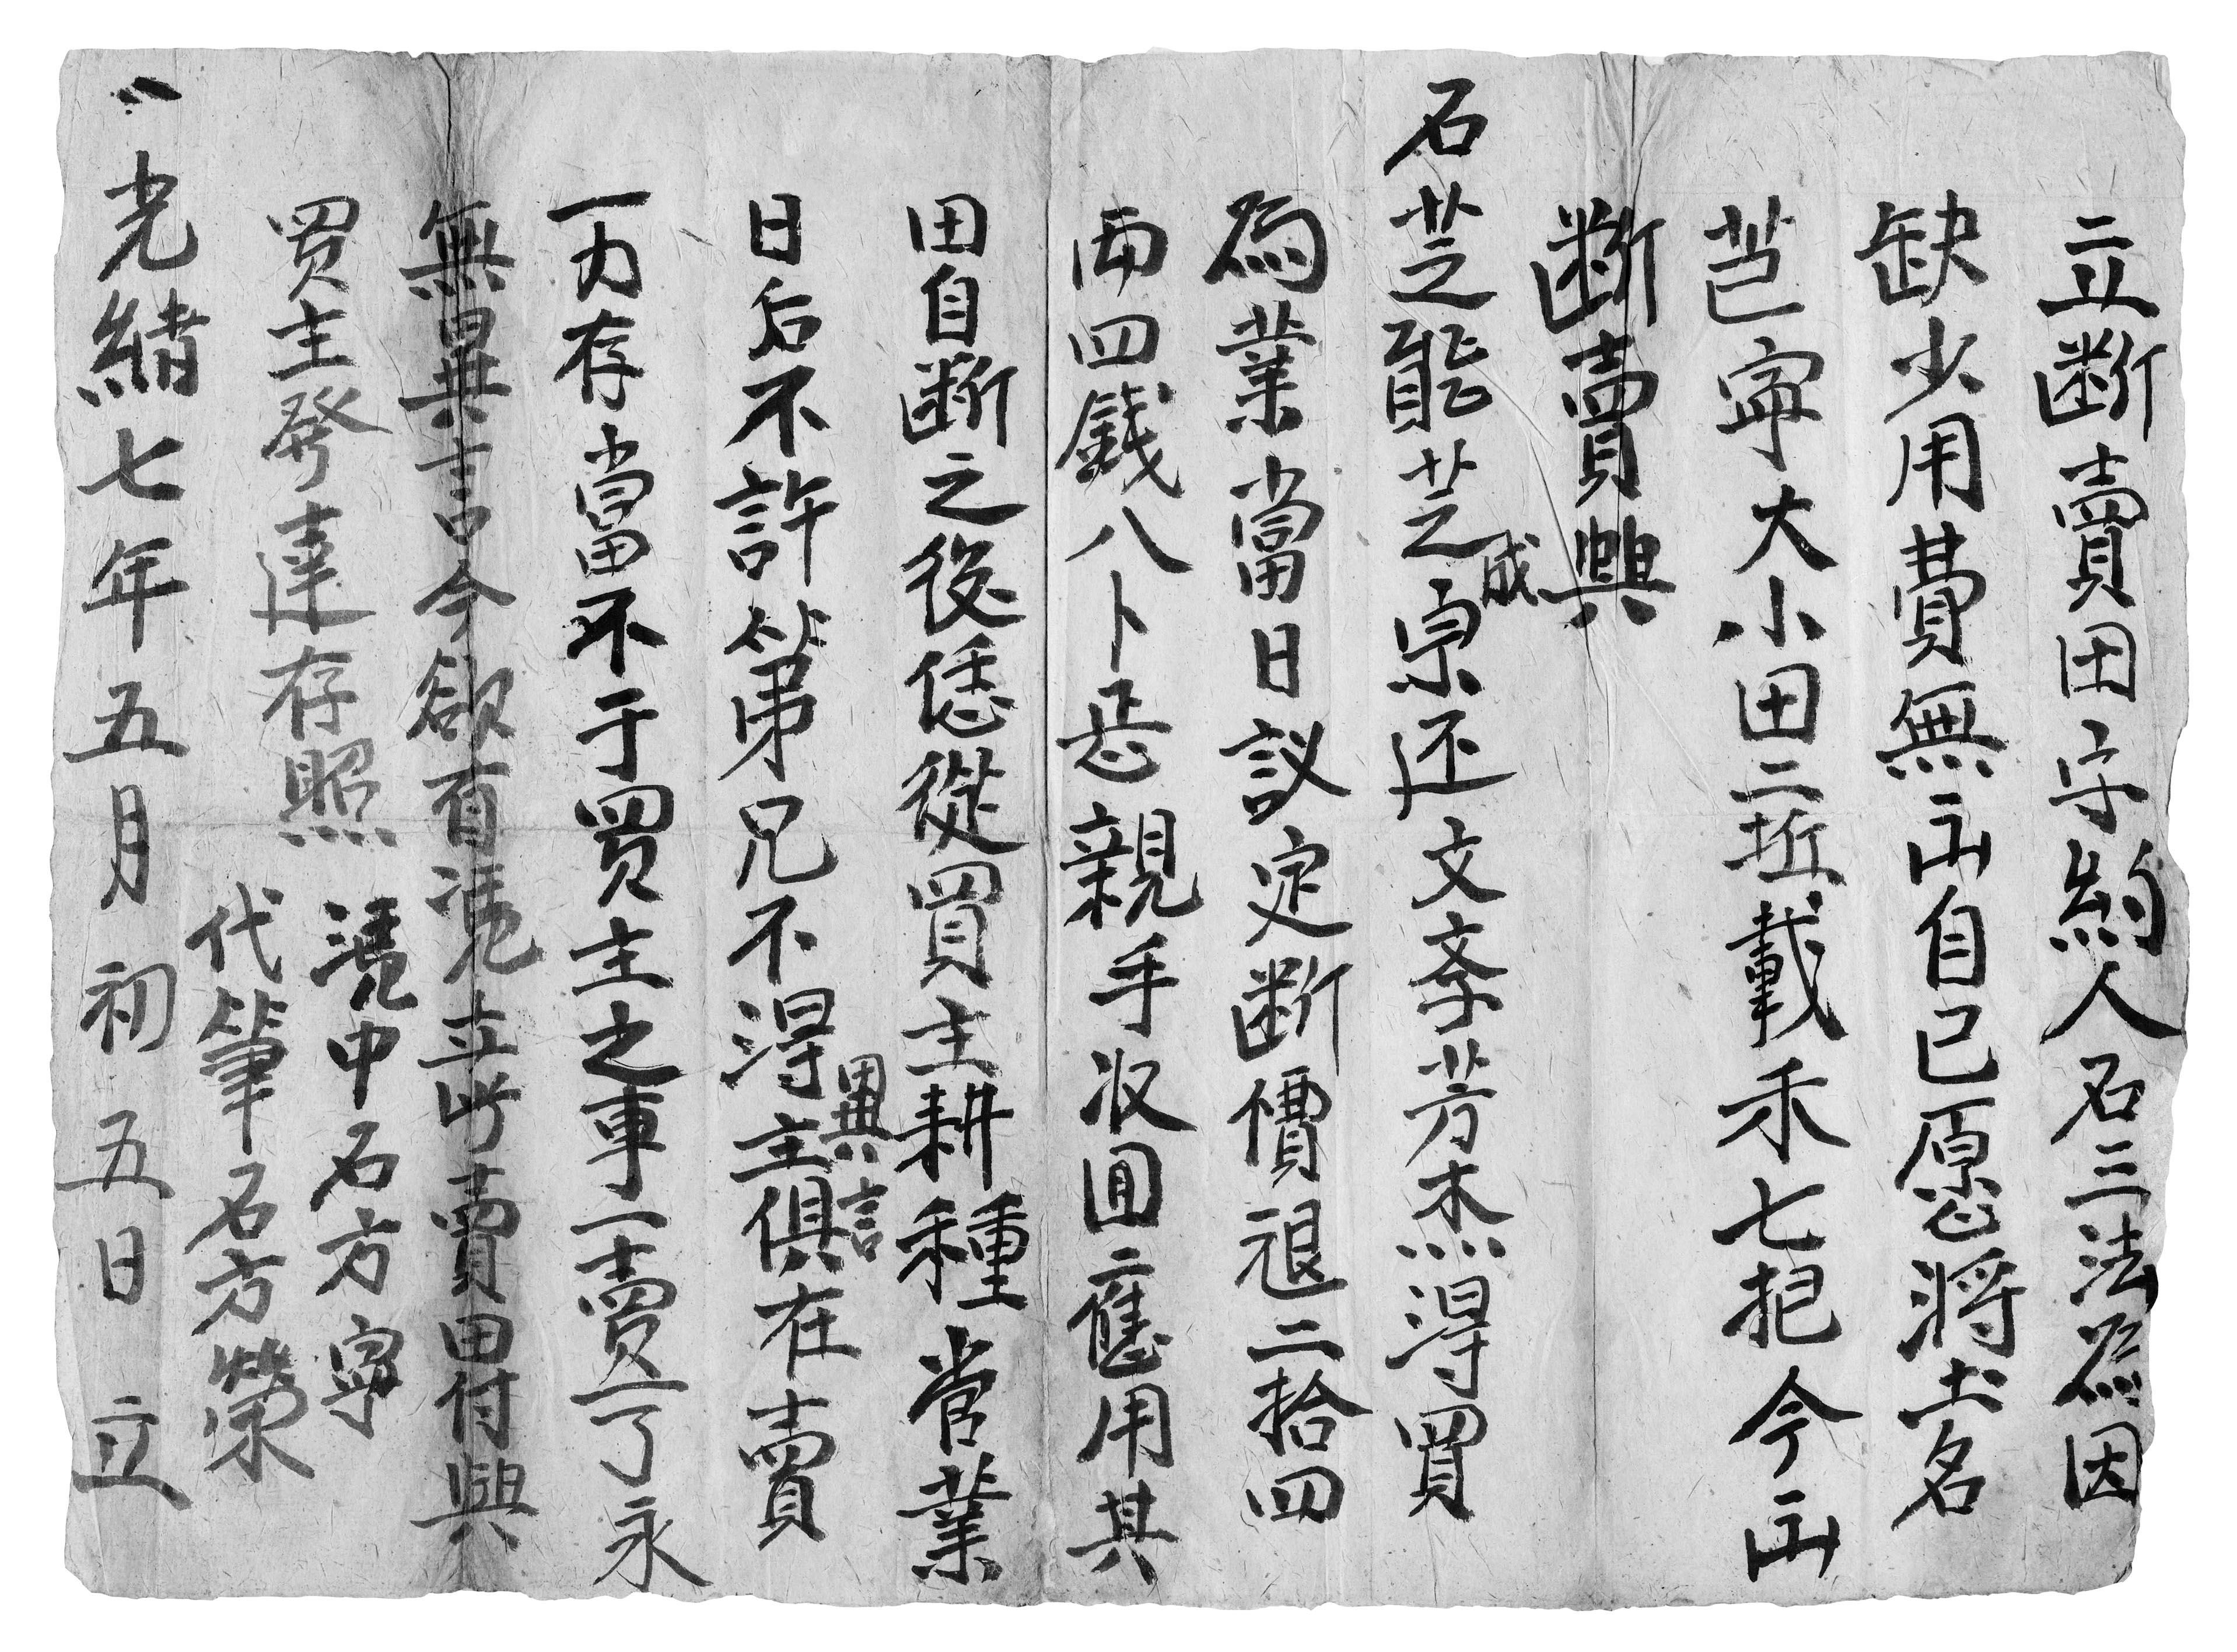 立断賣田字約人石三法為因
缺少用費無出自己愿将土名
芑寜大小田二坵載禾七把今出
断賣與
石芝能芝宗还文斈芳杰淂買
成
為業當日议定断價艮二拾四
両四錢八卜恁親手收囬應用其
田自断之後恁從買主耕種営業
日后不許弟兄不淂主俱在賣
異言
一力存當不于買主之事一賣一了永
無異言今欲有凴立此賣田付與
買主發達存照
凴中石方寜
代筆石方榮
光緒七年五月初五日立